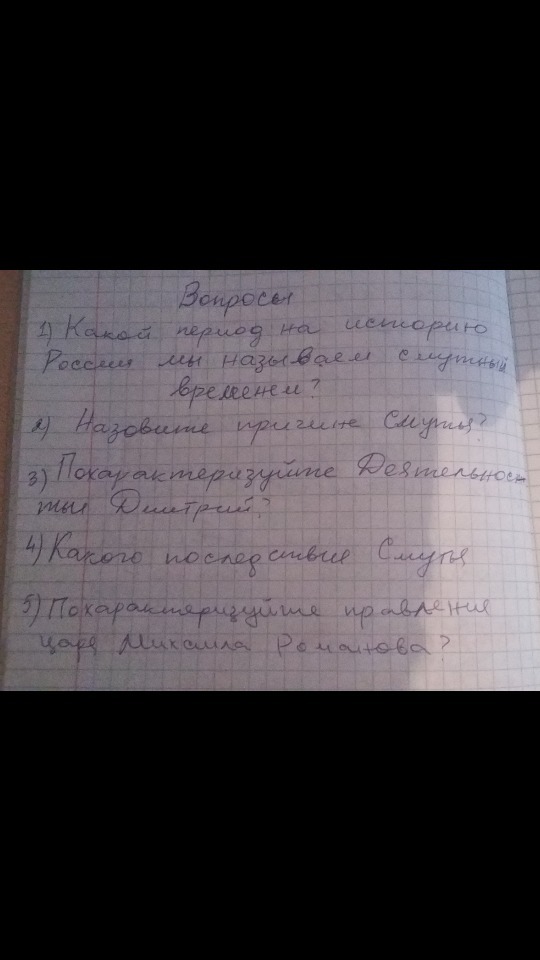 Вопросы
1) Какой период на историю
России мы называем смутный
временем?
2) Назовите причине Смуты?
3) Похарактеризуйте Деятельност
тые Дмитрий?
4) Какого последствие Смуты
5) Похарактеризуйте правление
царя Михаила Романова?